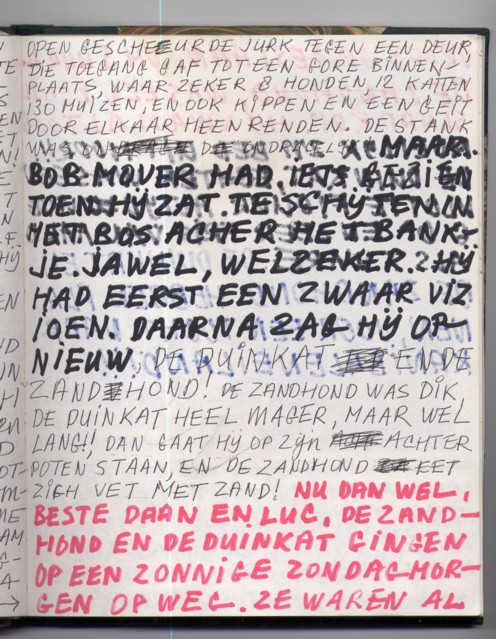 OPEN GESCHEEURDE JURK TEGEN EEN DEUR,
DIE TOEGANG GAF TOT EEN GORE BINNEN-
PLAATS, WAAR ZEKER 8 HONDEN, 12 KATTEN
130 MUIZEN, EN OOK KIPPEN EN EEN GEIT
DOOR ELKAAR HEEN RENDEN. DE STANK
WAS MAAR.
BOB MOVER HAD. IETS GEZIEN
TOEN HIJ ZAT. TE SCHIJTEN IN
HET BOS ACHER HET BANK-
JE. JAWEL, WELZEKER. HIJ
HAD EERST EEN ZWAAR VIZ
IOEN. DAARNA ZAG HIJ OP-
NIEUW. DE DUINKAT EN DE
ZANDHOND! DE ZANDHOND WAS DIK,
DE DUINKAT HEEL MAGER, MAAR WEL
LANG!!, DAN GAAT HIJ OP ZIJN ACHTER
POTEN STAAN, EN DE ZANDHOND EET
ZICH VET MET ZAND! NU DAN WEL,
BESTE DAAN EN LUC. DE ZAND-
HOND EN DE DUINKAT GINGEN
OP EEN ZONNIGE ZONDAGMOR-
GEN OP WEG. ZE WAREN AL